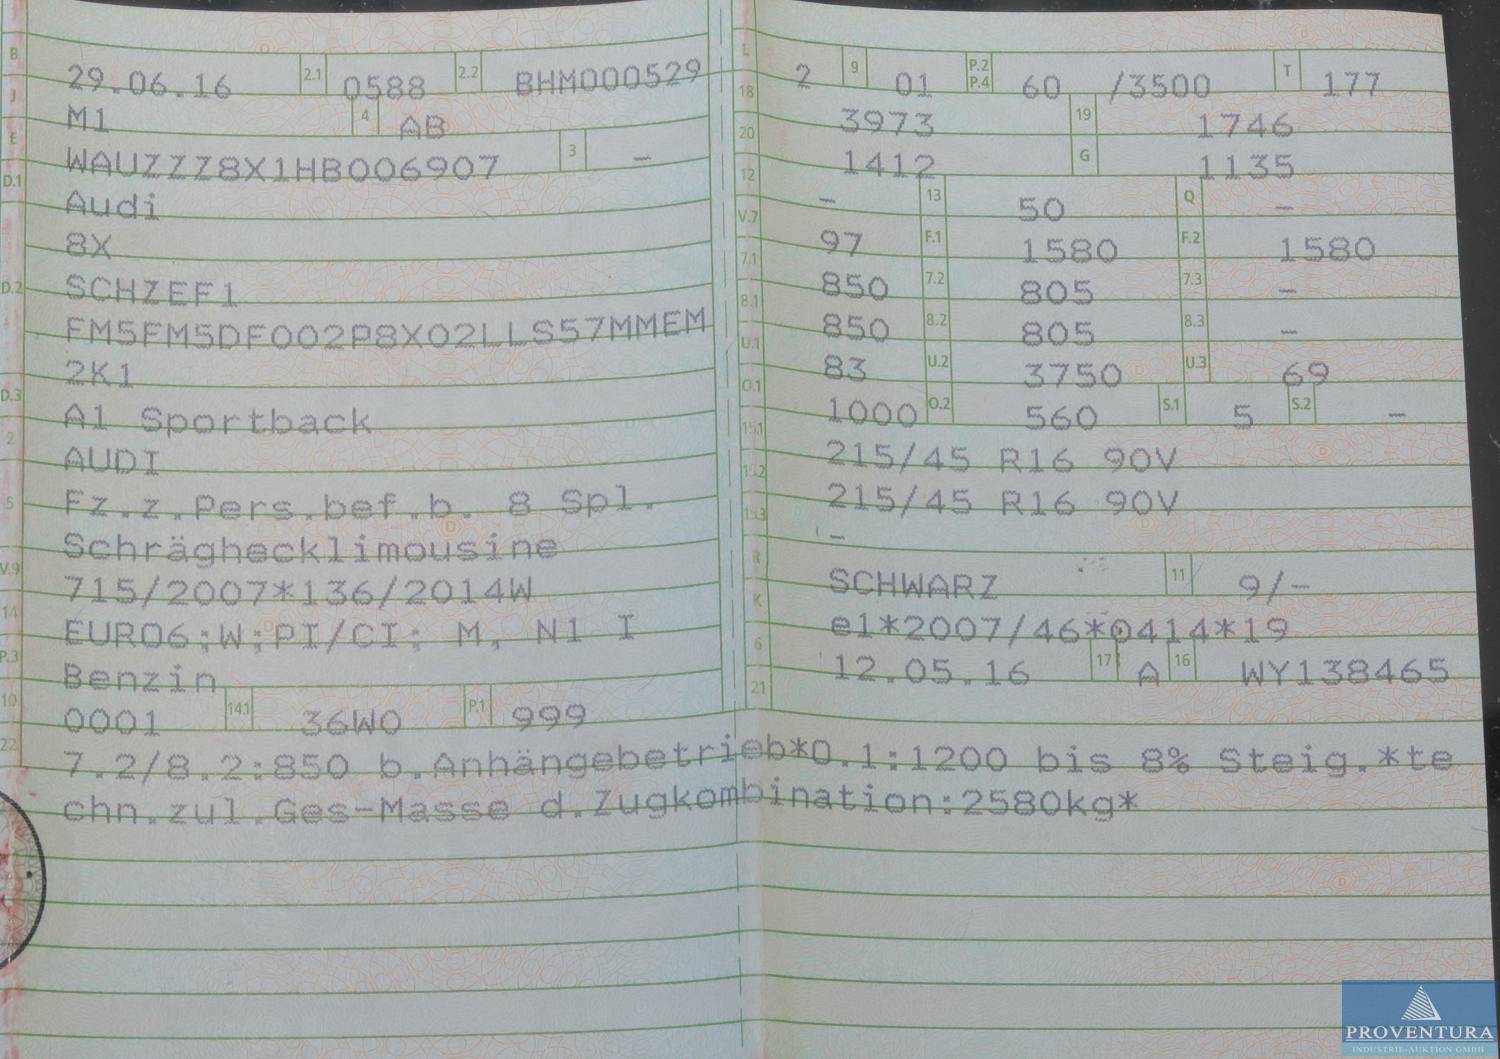 B 29.06.16 2.1 0588 2.2 BHM000529
J M1 4 AB
E WAUZZZ8X1HB006907 3 -
D.1 Audi
8X
D.2 SCHZEF1
FM5FM5DF002P8X02LLS57MMEM
2K1
D.3 A1 Sportback
2 AUDI
5 Fz.z.Pers.bef.b. 8 Spl.
Schräghecklimousine
V.9 715/2007*136/2014W
14 EURO6;W;PI/CI; M, N1 I
P.3 Benzin
10 0001 14.1 36W0 P.1 999
L 2 9 01 P.2 P.4 60 /3500 T 177
18 3973 19 1746
20 1412 G 1135
12 - 13 50 Q -
V.7 97 F.1 1580 F.2 1580
7.1 850 7.2 805 7.3 -
8.1 850 8.2 805 8.3 -
U.1 83 U.2 3750 U.3 69
O.1 1000 O.2 560 S.1 5 S.2 -
15.1 215/45 R16 90V
15.2 215/45 R16 90V
15.3 -
R SCHWARZ 11 9/-
K e1*2007/46*0414*19
6 12.05.16 17 A 16 WY138465
21
22 7.2/8.2:850 b.Anhängebetrieb*O.1:1200 bis 8% Steig.*te
chn.zul.Ges-Masse d.Zugkombination:2580kg*
PROVENTURA
INDUSTRIE-AUKTION GMBH